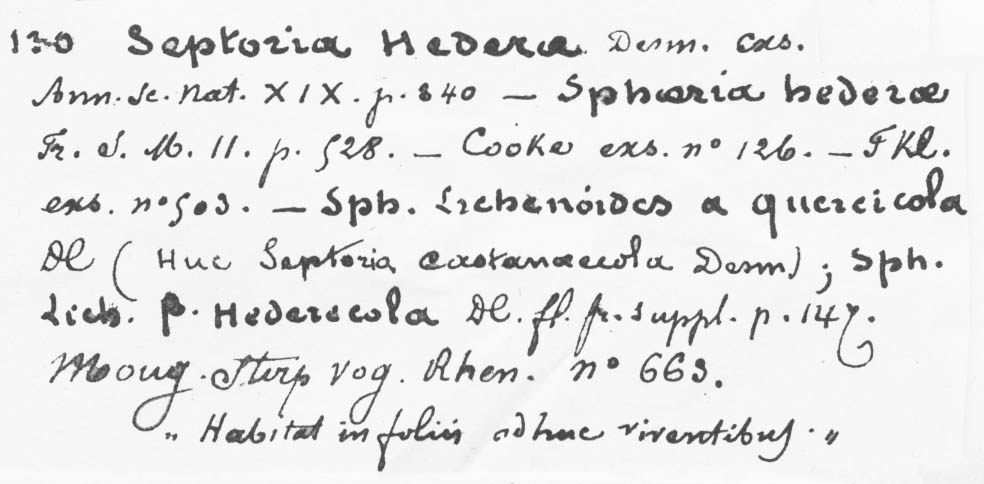 130 Septoria Hederæ Desm. exs.
Ann. Sc. nat. XIX. p. 340 — Sphæria hederæ
Fr. S. M. 11. p. 528. — Cooke exs. n° 126. — FKl.
exs. n° 503. — Sph. Lichenóides a quercicola
DC ( Huc Septoria castanæcola Desm) ; Sph.
Lich. β. Hederæcola DC. fl. fr. suppl. p. 147.
Moug. Stirp vog. Rhen. n° 663.
„ Habitat in foliis adhuc viventibus. „